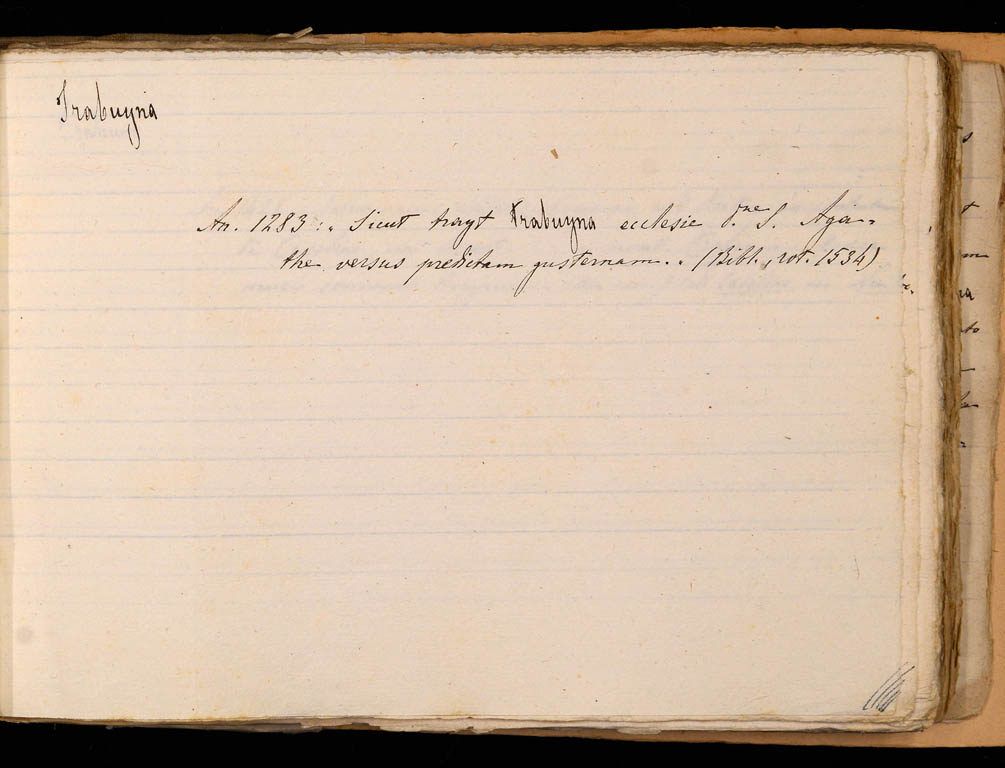 Trabuyna
An. 1283: „ Sicut trayt trabuyna ecclesie d.ne S. Aga-
the versus predictam gusternam. „ (Bibl., rot. 1534)